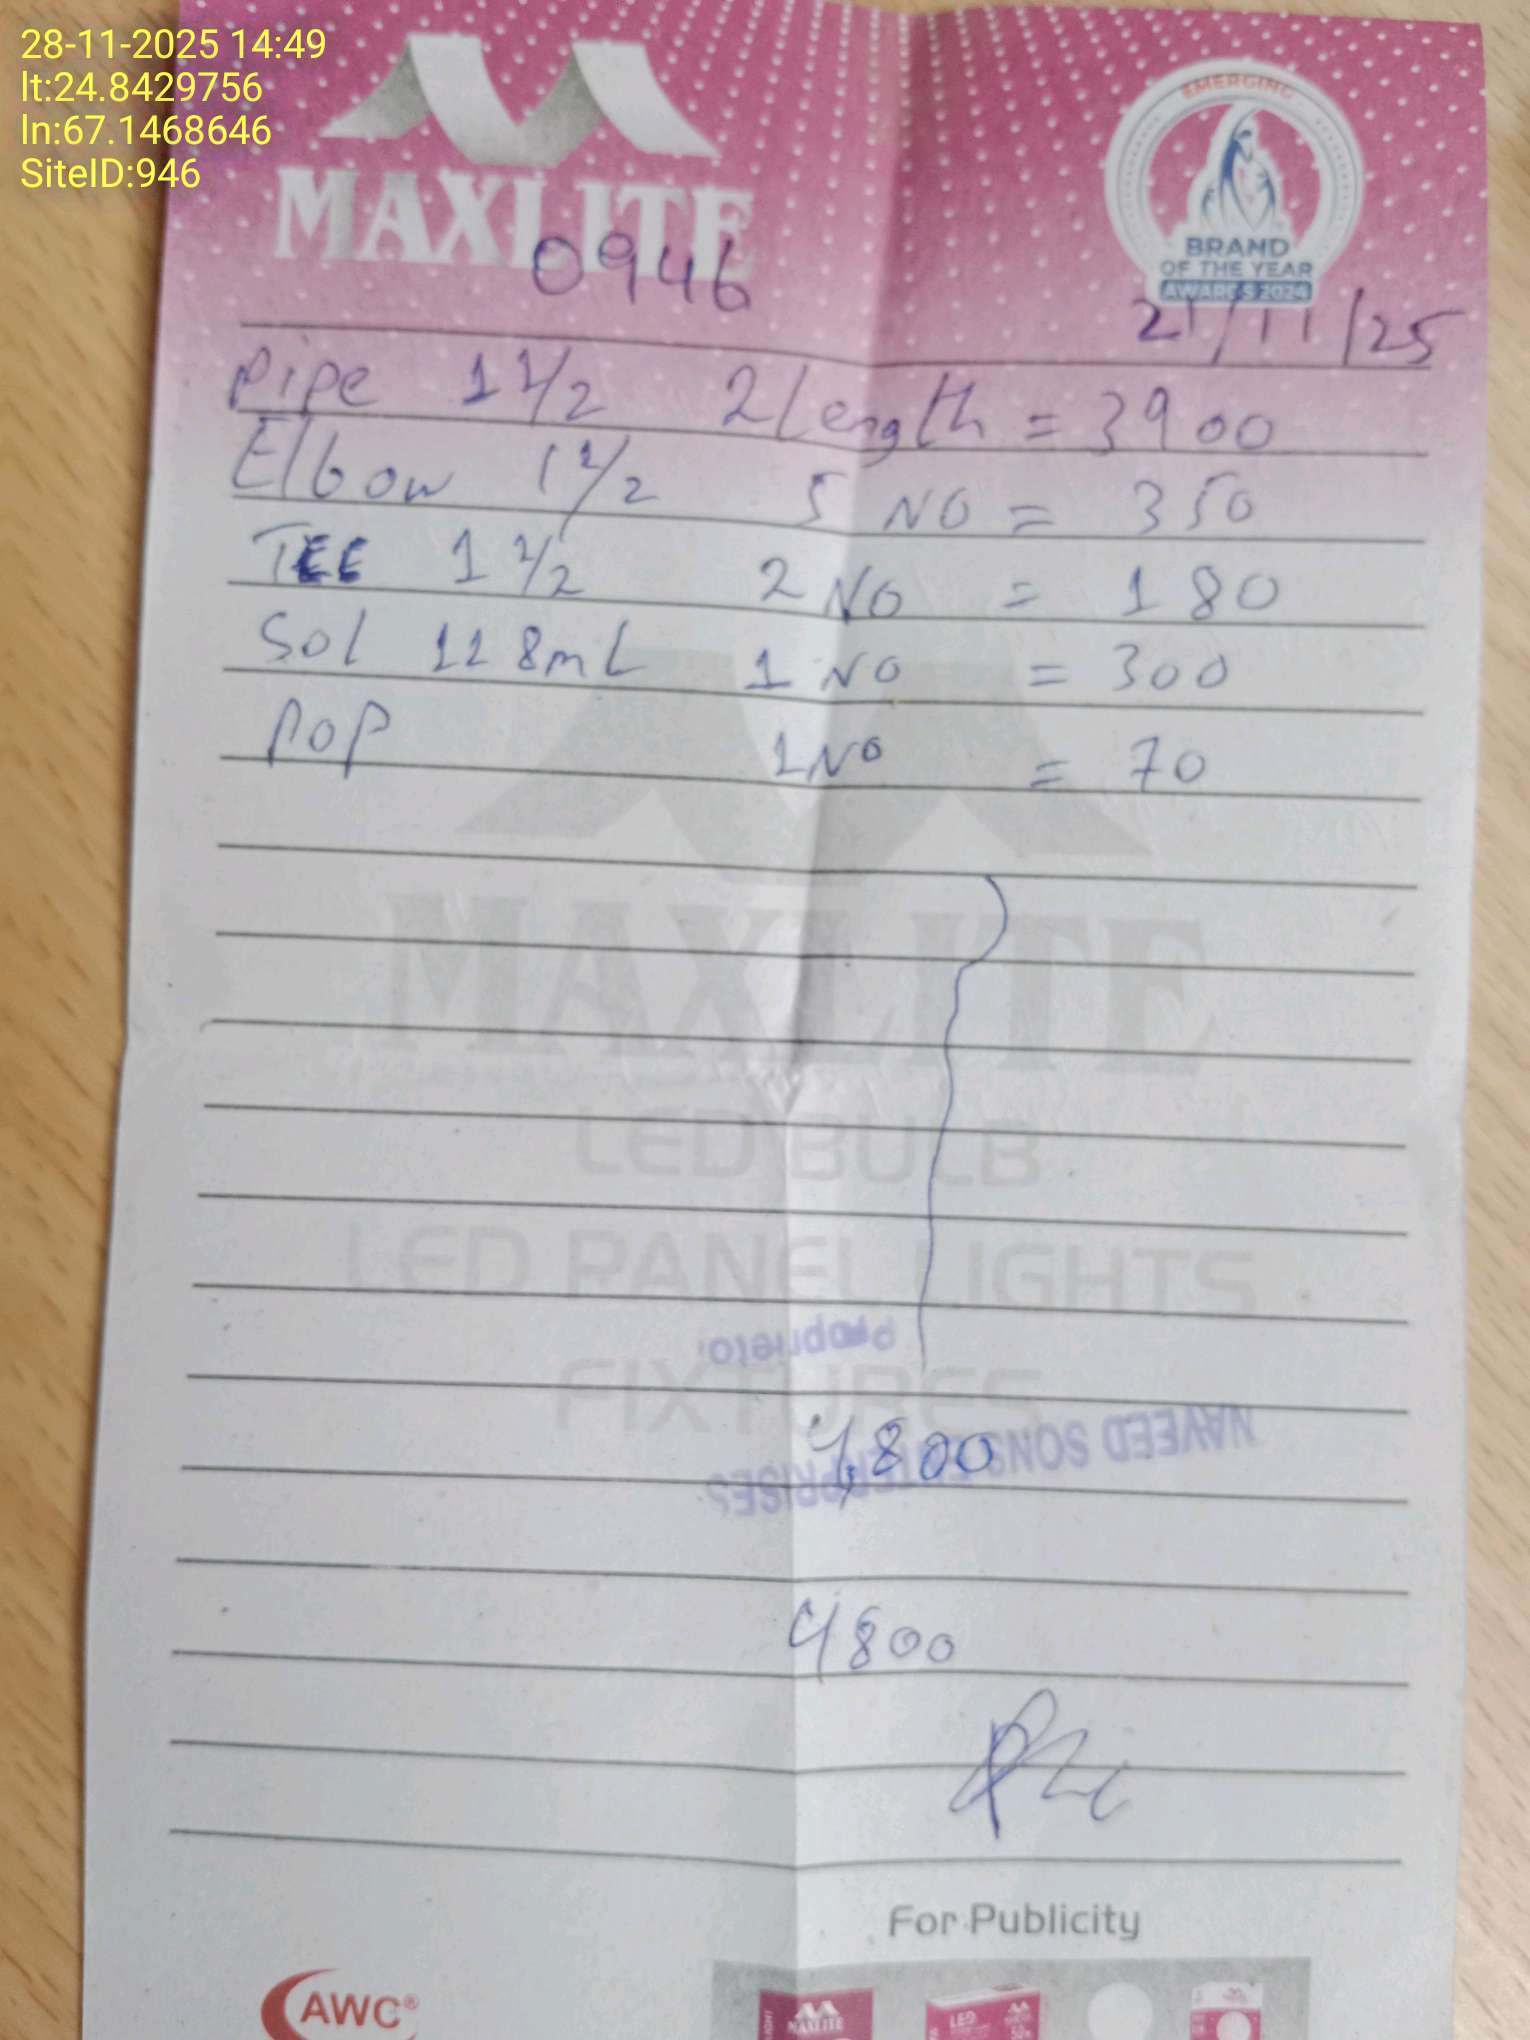 28-11-2025 14:49
lt:24.8429756
ln:67.1468646
SiteID:946
MAXLITE
EMERGING
BRAND
OF THE YEAR
AWARDS 2024
0946
21/11/25
Pipe 1 1/2 2 Length = 3900
Elbow 1 1/2 5 NO = 350
TEE 1 1/2 2 NO = 180
Sol 118mL 1 NO = 300
POP 1 NO = 70
MAXLITE
LED BULB
LED PANEL LIGHTS
FIXTURES
Proprietor
NAVEED SONS ENTERPRISES
4800
4800
For Publicity
AWC®
MAXLITE
LED